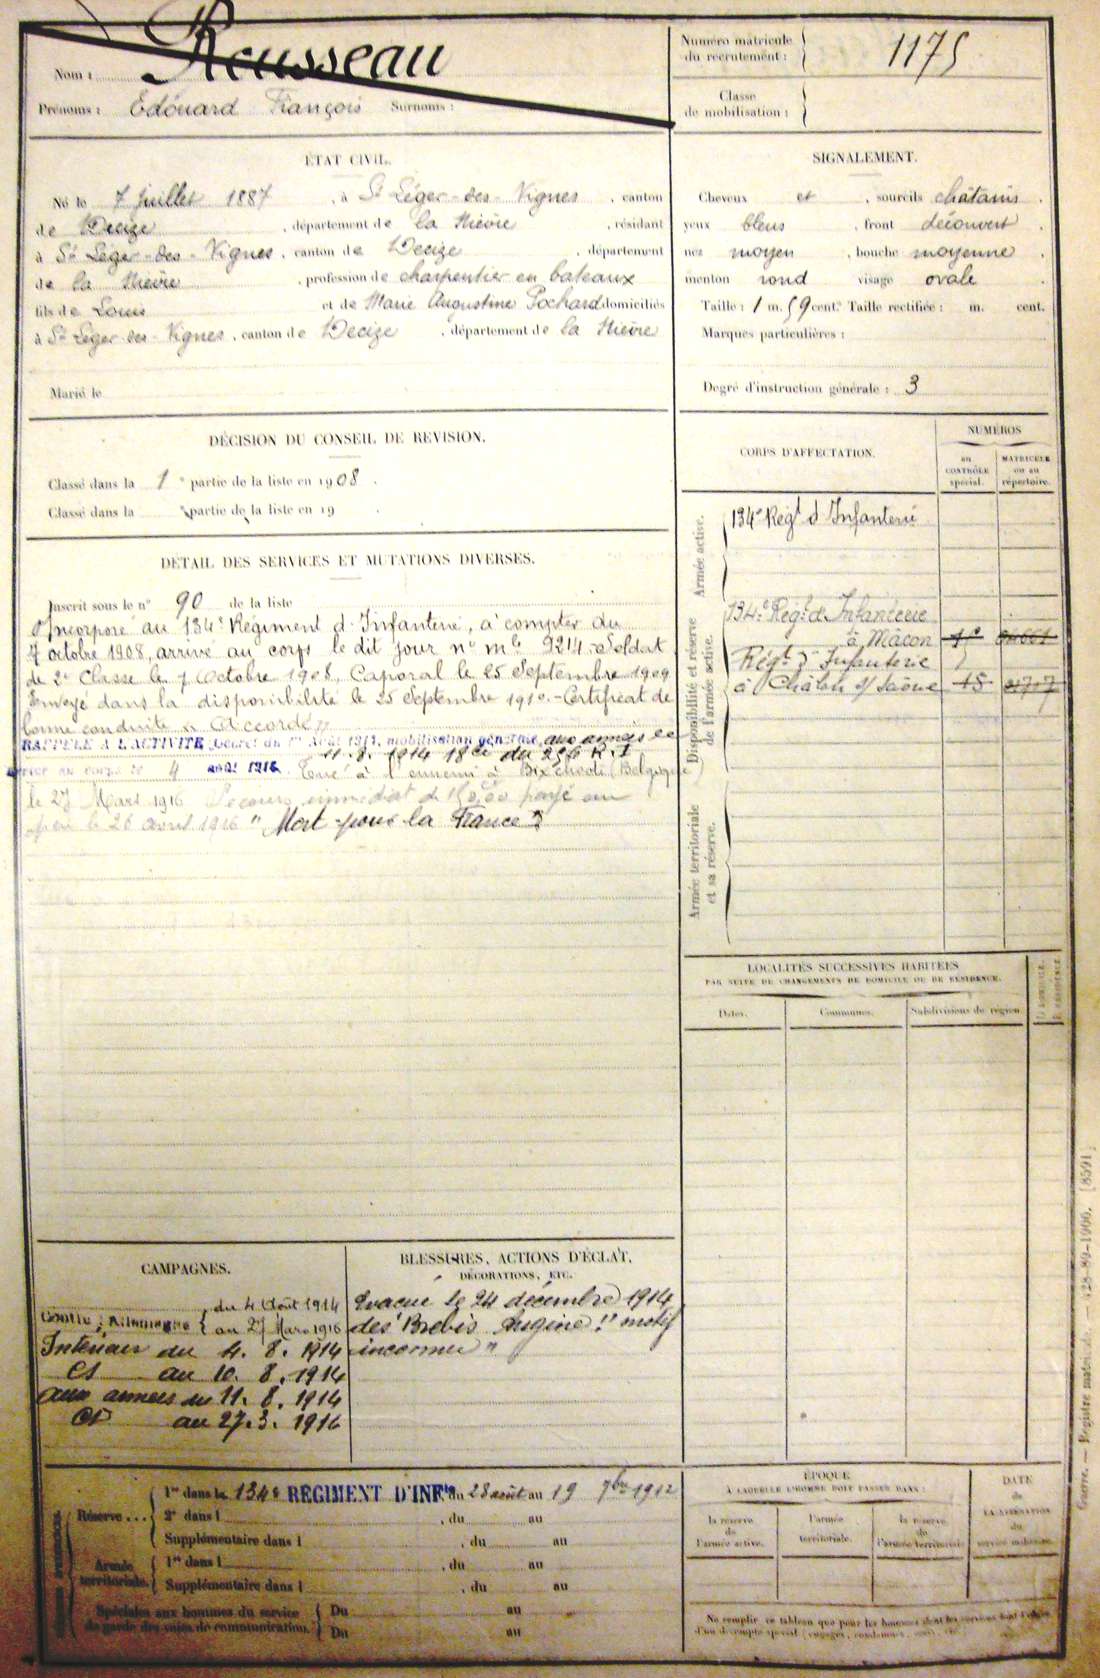 Nom : Rousseau
Prénoms : Edouard François Surnoms :
Numéro matricule du recrutement : 1175
Classe de mobilisation :
ÉTAT CIVIL.
Né le 7 Juillet 1887, à St Léger-des-Vignes, canton
de Decize, département de la Nièvre, résidant
à St Léger-des-Vignes, canton de Decize, département
de la Nièvre, profession de charpentier en bateaux
fils de Louis et de Marie Augustine Pochard domiciliés
à St Léger-des-Vignes, canton de Decize, département de la Nièvre
Marié le
SIGNALEMENT.
Cheveux et, sourcils châtains.
yeux bleus, front découvert.
nez moyen, bouche moyenne.
menton rond visage ovale.
Taille : 1 m. 59 cent. Taille rectifiée : m. cent.
Marques particulières :
Degré d'instruction générale : 3
DÉCISION DU CONSEIL DE REVISION.
Classé dans la 1e partie de la liste en 1908.
Classé dans la e partie de la liste en 19 .
DÉTAIL DES SERVICES ET MUTATIONS DIVERSES.
Inscrit sous le n° 90 de la liste
Incorporé au 134e Régiment d'Infanterie, à compter du
7 octobre 1908, arrivé au corps le dit jour n° mle 9214. Soldat
de 2e Classe le 7 Octobre 1908, Caporal le 25 Septembre 1909
Envoyé dans la disponibilité le 25 Septembre 1910.- Certificat de
bonne conduite "Accordé"
RAPPELÉ A L'ACTIVITÉ Décret du 1er Août 1914, mobilisation générale, aux armées le
11.8.1914 18e Cie du 256 R.I
Arrivé au corps le 4 août 1914. Tué à l'ennemi à Bixchoote (Belgique)
le 27 Mars 1916 Secours immédiat de 150,00 payé au
le 26 avril 1916 "Mort pour la France"
CORPS D'AFFECTATION.
NUMÉROS
au CONTRÔLE spécial.
MATRICULE ou au répertoire.
Armée active.
134e Régt d'Infanterie
Disponibilité et réserve de l'armée active.
134e Régt d'Infanterie
à Mâcon
Régt d'Infanterie
à Châlon s/ Saône 15
Armée territoriale et sa réserve.
LOCALITÉS SUCCESSIVES HABITÉES
PAR SUITE DE CHANGEMENTS DE DOMICILE OU DE RÉSIDENCE.
Dates.
Communes.
Subdivisions de région.
D. DOMICILE.
R. RÉSIDENCE.
CAMPAGNES.
Contre l'Allemagne du 4 Août 1914
au 27 Mars 1916
Intérieur du 4. 8. 1914
Ct au 10. 8. 1914
aux armées du 11. 8. 1914
Ct au 27. 3. 1916
BLESSURES, ACTIONS D'ÉCLAT,
DÉCORATIONS, ETC.
Evacué le 24 décembre 1914
des Brebis Angine "motif
inconnu"
Réserve...
1re dans le 134e RÉGIMENT D'INFie, du 28 août au 19 7bre 1912
2e dans l , du au
Supplémentaire dans l , du au
Armée territoriale.
1re dans l , du au
Supplémentaire dans l , du au
Spéciales aux hommes du service de garde des voies de communication.
Du au
Du au
ÉPOQUE
À LAQUELLE L'HOMME DOIT PASSER DANS :
la réserve de l'armée active.
l'armée territoriale.
la réserve de l'armée territoriale
DATE
de
LA LIBÉRATION
du
service militaire.
Ne remplir ce tableau que pour les hommes dont les services sont l'objet
d'un décompte spécial (engagés, condamnés,
Guerre. — Registre matricule. — 128-89-1906. [8591]